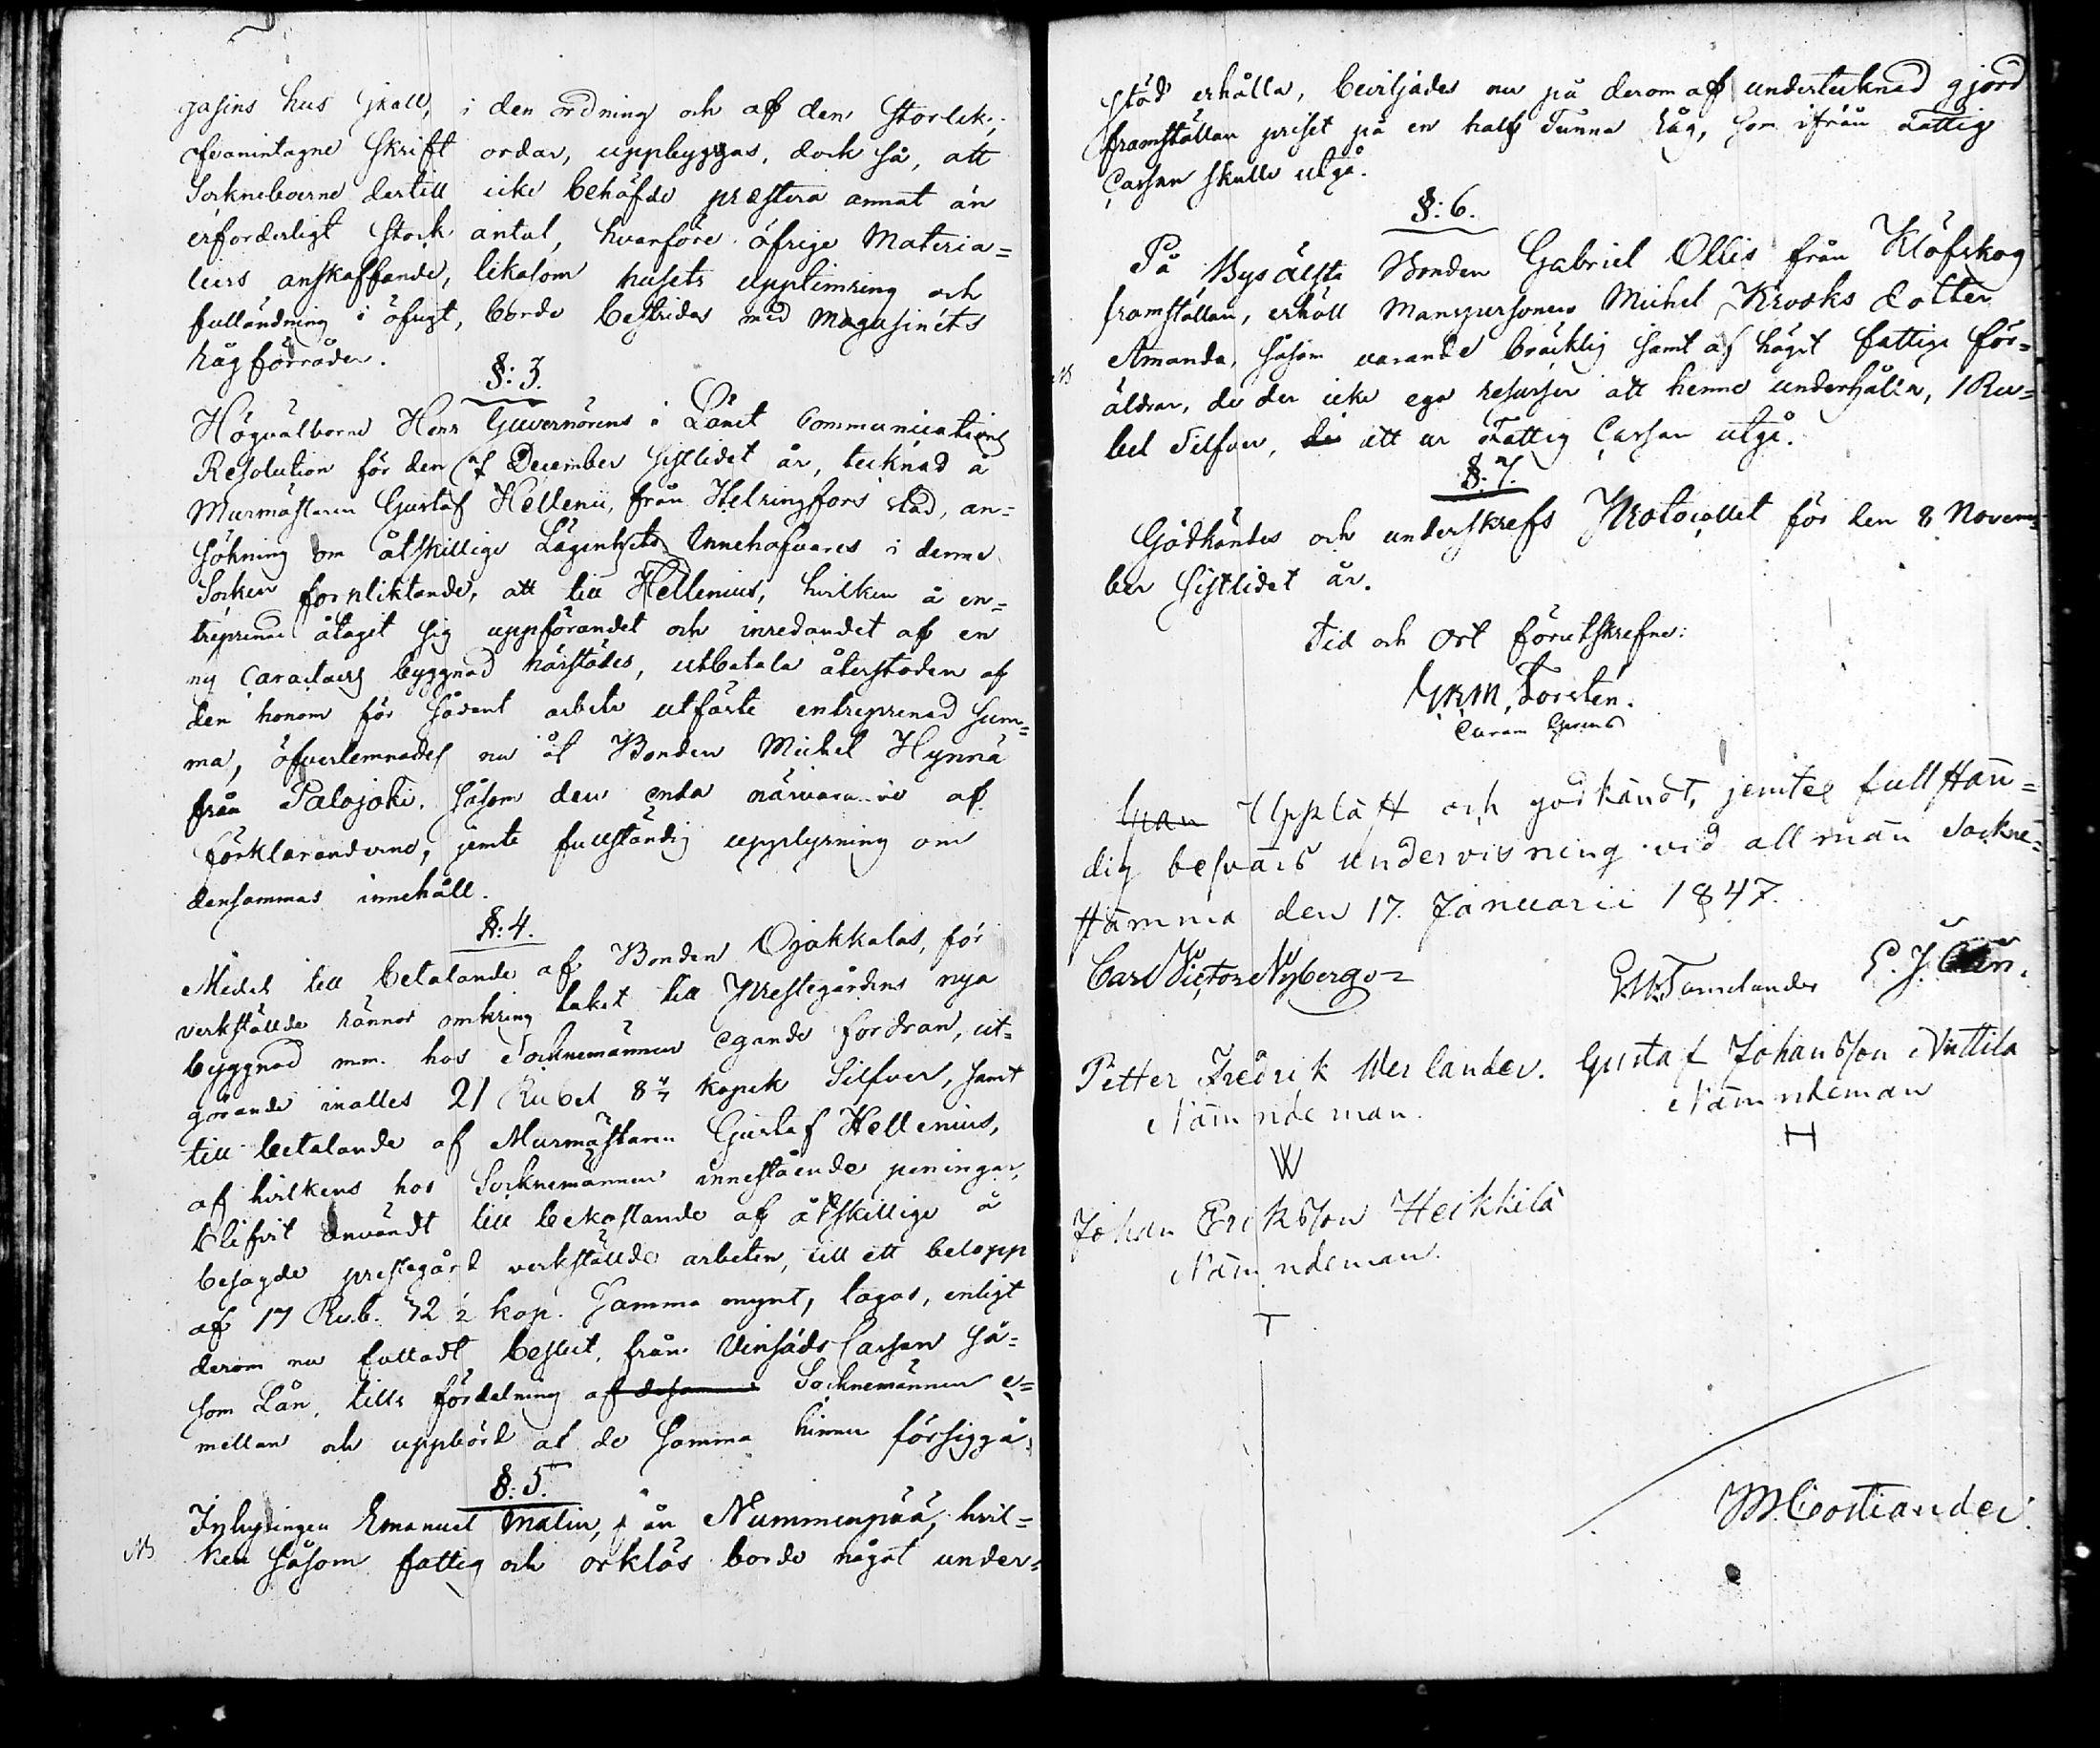 gasins hus skall, i den ordning och af den storlek,
ofvanintagne skrift ordar, uppbyggas, dock så, att
Sockneboerne dertill icke behöfde præstera annat än
erforderligt stock antal, hvarföre öfrige Materia=
liers anskaffande, likasom husets upptimring och
fulländning i öfrigt, borde bestridas med Magasinets
Rågförråder.
§: 3.
Högvälborne Herr Guvernörens i Länet Communications
Resolution för den December sistlidet år, tecknad å
Murmästaren Gustaf Hellenii, från Helsingfors stad, an=
sökning om åtskillige Lägenhets Innehafvares i denne
Socken förpliktande, att till Hellenius, hvilken å en=
treprenad åtaget sig uppförandet och inredandet af en
ny byggnad härstädes, utbetala återstoden af
den honom för sådant arbete utfäste entreprenad sum=
ma, öfverlemnades nu åt Bonden Michel Hynnä
från Palojoki, såsom den enda närvarande af
förklaranderne, jemte fullständig upplysning om
densammas innehåll.
§: 4.
Medel till betalande af Bonden Ojakkalas, för
verkställde rännor omkring taket till Prestegårdens nya
byggnad m.m. hos Socknemännen egande fordran, ut=
görande inalles 21 Rubel 8 4/7 kopek Silfver, samt
till betalande af Murmästaren Gustaf Hellenius,
af hvilkens hos Socknemännen innestående peningar,
blifvit användt till bekostande af åtskillige å
besagde prestegård verkställde arbeten, till ett belopp
af 17 Rub. 72 1/2 kop. Samma mynt, togos, enligt
derom nu fattadt beslut, från Vinsäds Cassan så=
som Lån, tills fördelning af desamma Socknemännen e=
mellan och uppbörd af de samma hinner försiggå.
§: 5.
Inhysingen Emanuel Malin, från Nummenpää, hvil=
NB. ken såsom fattig och orklös borde något under=
stöd erhålla, beviljades nu på derom af undertecknad gjord
framställan priset på en half Tunna Råg, som ifrån Fattig
Cassan skulle utgå.
§: 6.
På Bysälste Bonden Gabriel Ollis från Klöfskog
framställan, erhöll Manspersonen Michel Krooks dotter
Amanda, såsom varande bräcklig samt af högst fattige för=
NB äldrar, de der icke ega resurser att henne underhålla, 1 Ru=
bel Silfver, att ur Fattig Cassan utgå.
§: 7.
Godkändes och underskrefs Protocollet för den 8 Novem=
ber sistlidet år.
Tid och Ort förutskrefne:
G.M. Forstén.
Uppläst och godkändt, jemte fullstän=
dig besvärs undervisning vid allmän Sockne=
stämma den 17. Januarii 1847.
Carl Victor Nyberg
Petter Fredrik Werlander. Gustaf Johansson Nuttila
Nämndeman. Nämndeman
W H
Johan Eriksson Heikkilä
Nämndeman.
T
M. Costiander.